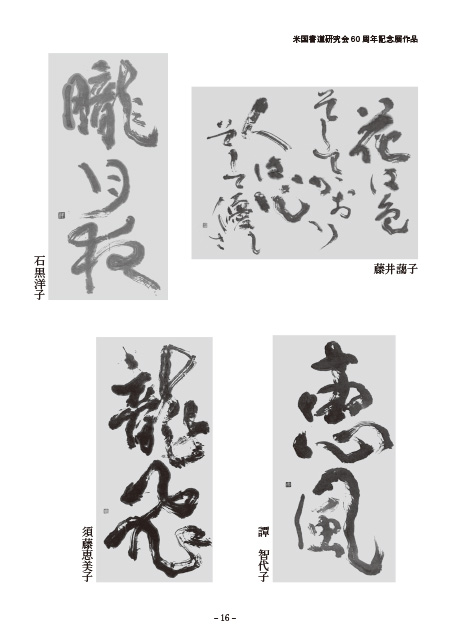 米国書道研究会60周年記念展作品
花は色
そしてかおり
人は心
そして優しさ
藤井藹子
朧月夜
石黒洋子
恵風
譚 智代子
龍飛
須藤恵美子
– 16 –